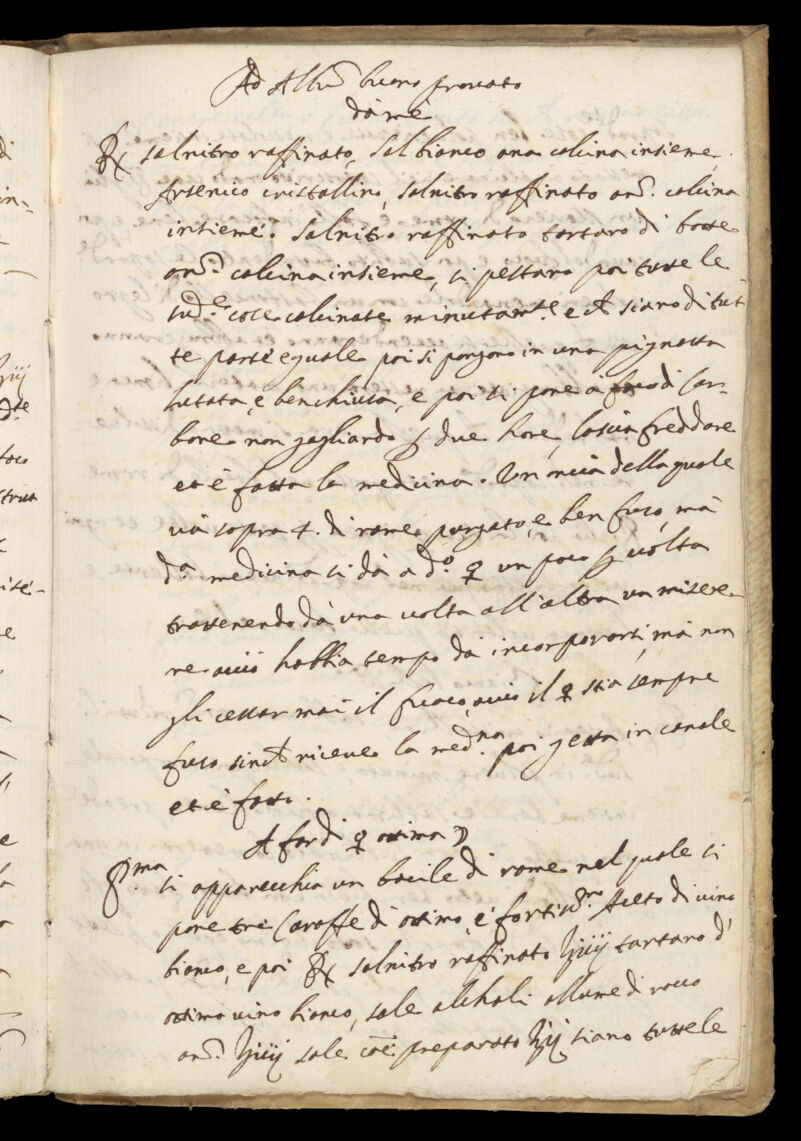 Ad Albũ buono provato
dà me
℞ salnitro raffinato, sal bianco ana calcina insieme,
Arsenico cristallino, salnitro raffinato anã. calcina
insieme. Salnitro raffinato tartaro di botte
anã. calcina insieme, si pestano poi tutte le
sud.e cose calcinate minutam.te e siano di tut-
te parte eguale, poi si pongono in una pignatta
lutata, e ben chiusa, e poi si pone a fuoco di Car-
bone non gagliardo ꝑ due hore, lascia freddare
et è fatta la medicina. Un oncia della quale
và sopra 4. di rame purgato, e ben fuso, mà
d.a medicina si dà a d.o ♀ un poco ꝑ volta
trattenendo dà una volta all'altra un misere-
re acciò habbia tempo dà incorporarsi, mà non
gli cessar mai il fuoco, acciò il ♀ stia sempre
fuso sin riceve la med.na poi getta in canale
et è fatto.
A far di ♀ ottima ☽
P.ma si apparecchia un bacile di rame nel quale si
pone tre Caraffe di ottimo, e fortiss.mo Aceto di vino
bianco, e poi ℞ salnitro raffinato ℥iiij tartaro d'
ottimo vino bianco, sale alchali allume di rocco
anã. ℥iiij sale coẽ preparato ℥ij siano tutte le
in-
℥iij
d.te
foco
e